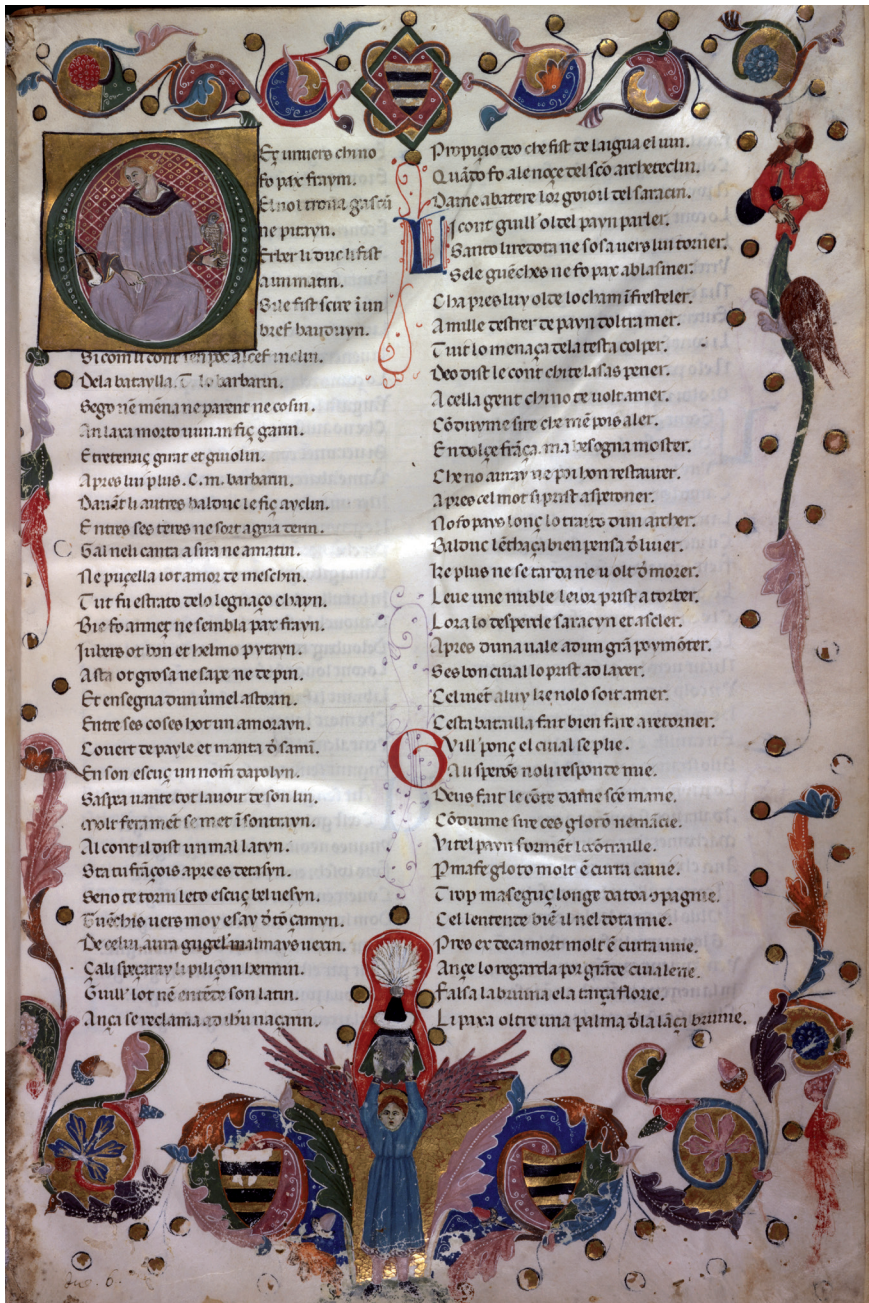 Er univers chi no
fo pax fraym.
El noi trova gascū
ne pitayn.
Erber li duc li fist
a un matin.
Si le fist scrire ī un
bref baudouyn.
Si com li cont
Dela bataylla. T. lo barbarin.
Sego nē mēna ne parent ne cosin.
An laxa morto vivian fiç garin.
Et retenuç girat et guiolin.
Apres lui plus. C. m. barbarin.
Davāt li autres balduc le fiç ayclin.
Entres ses teres ne sort agua ne vin.
Gal neli canta a sira ne a matin.
Ne puçella i ot amor de meschin.
Tut fu estrato delo legnaço chayn.
Biē fo armeç ne sembla pax frayn.
Iubers ot bon et helmo pytayn.
Asta ot grosa ne sape ne de pin.
Et ensegna dun vmel astorin.
Entre ses coses hot un amoravn.
Covert de payle et manta d̄ samī.
En son escuç un nom̄ dapolyn.
Gaspea vante tot lavoir de son lin.
Molt feramēt se met ī son trayn.
Al cont il dist un mal latyn.
Sta tu frāçois apre es detasyn.
Seno te torni leto escuç beluesyn.
Guēchis vers moy esay d̄ tō çamyn.
De celui aura gugel malmays vexin.
Çali speçaray li piliçon hermin.
Guill' lot nē entēde son latin.
Ança se reclama ad ihu naçarin.
Propiçio deo che fist de laigua el vin.
Quādo fo a le noçe del scō archeteclin.
Daine abatere lorgoioil del saracin.
Li cont guill' oldel payn parler.
Santo liredota ne sosa vers lui torner.
Sele guēches ne fo pax a blasmer.
Cha pres luy olde lo cham ī fresteler.
A mille destrer de payn doltra mer.
Tuit lo menaça dela testa colper.
Deo dist le cont chi te lasas pener.
A cella gent chi no te volt amer.
Cōduyme sire che mē poio aler.
En dolçe frāça. ma besogna moster.
Che no auray ne poi bon restaurer.
Apres cel mot si prist asperoner.
No fo pays lonç lo traire dun archer.
Balduc lēchaça bien pensa d̄ luier.
Ke plus ne se tarda ne volt d̄morer.
Leve une nuble levor prist a torber.
Lora lo desperde saracyn et ascler.
Apres duna vale ad un grā poymōter.
Ses bon cival lo prist ad laxer.
Celmēt a luy ke nolo soit amer.
Cesta batailla fait bien faire a retorner.
Guill' ponç el cival se plie.
Al i sperōe noli responde mie.
Deus fait le cōte dame scē marie.
Cōduime sire ces glotō nemācie.
Vitel payn formēt lecōtraille.
Pmafe gloto molt ē curta cavie.
Trop maseguç longe da toa 9pagnie.
Cel lentende biē il nel dota mie.
Pres er deca mort molt ē curta uvie.
Ançe lo regarda por grāde civalerie.
Falsa la bruina e la targa florie.
Li paxa oltre una palma d̄la lāça brunie.